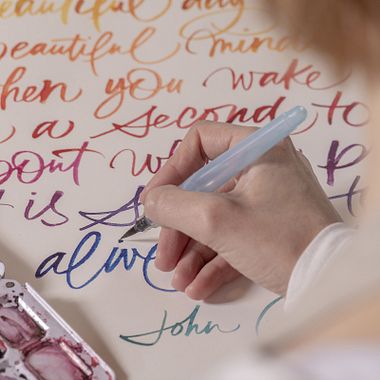 beautiful day
beautiful mind
when you wake
a second to
is
alive
John